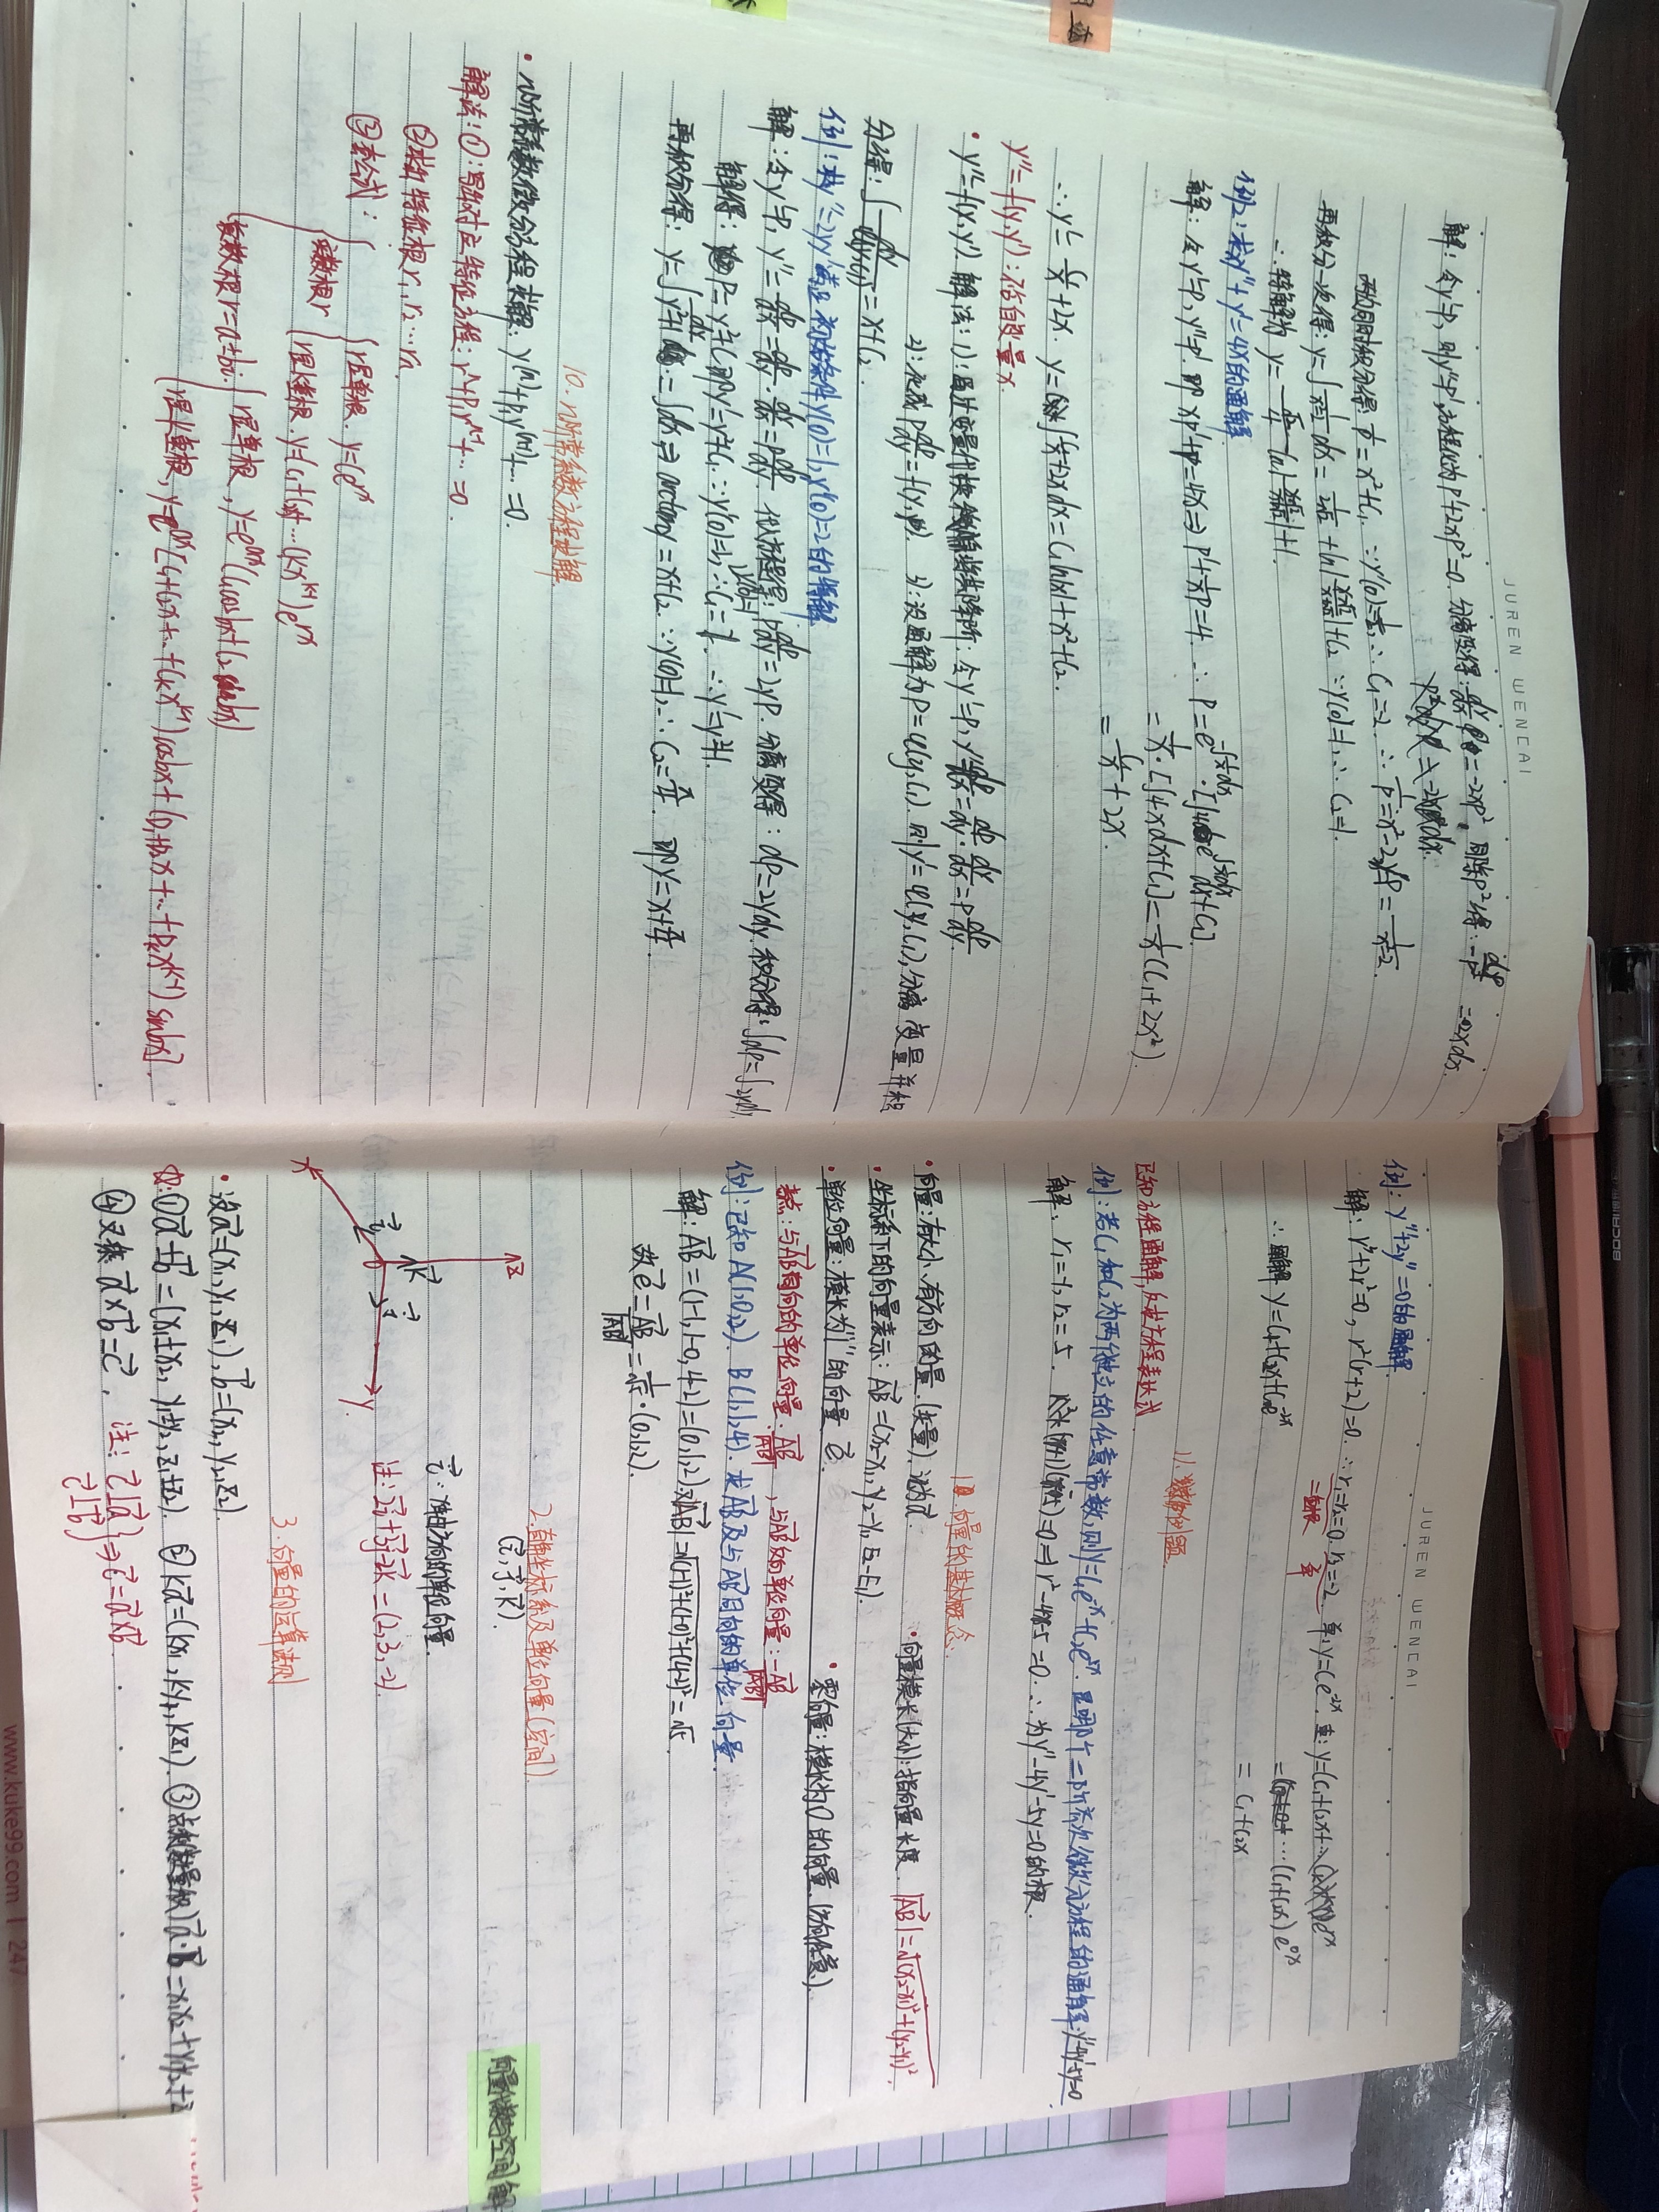 JUREN WENCAI
解：令y'=p，则y''=p'，方程化为p'+2xp²=0. 分离变得：dy/dx = -2xp²，同除p²得：dp/-p² = 2xdx.
两边同时积分得：1/p = x²+C₁. ∵y'(0)=-1/2, ∴C₁=-2. ∴ 1/p = x²-2, y'=p = 1/x²-2.
再积分一次得：y=∫1/x²-2 dx = 1/2√2 + ln|x-√2/x+√2|+C₂ ∵y(0)=1, ∴C₂=1.
∴特解为 y= √2/4 ln|x-√2/x+√2|+1.
例2：求xy''+y'=4x的通解
解：令y'=p, y''=p'. 即 xp'+p=4x⇒p'+1/x p=4. ∴ p=e^{-∫1/x dx}·[∫4e^{∫1/x dx}dx+C₁].
= 1/x·[∫4xdx+C₁]=1/x(C₁+2x²).
= C₁/x + 2x.
∴y'= C₁/x +2x. y=∫C₁/x+2x dx=C₁ln|x|+x²+C₂.
y''=f(y,y')：不含自变量x.
• y''=f(y,y'). 解法：1)：通过变量代换将其降阶：令y'=p, y''=dp/dx=dp/dy·dy/dx=p dp/dy.
2)：化成 p dp/dy=f(y,p). 3)：设通解为p=φ(y,C₁). 则y'=φ(y,C₁), 分离变量并积
分得：∫dy/φ(y,C₁)=x+C₂.
例：求y''=2yy'满足初始条件y(0)=1, y'(0)=2的特解
解：令y'=p, y''=dp/dx=dp/dy·dy/dx=p dp/dy. 代入方程得：p dp/dy=2yp. 分离变得：dp=2ydy. 积分得：∫dp=∫2ydy.
解得：p=y²+C₁即y'=y²+C₁ ∵y'(0)=2, y(0)=1 ∴C₁=1. ∴y'=y²+1.
再积分得：y=∫dy/y²+1=∫dx⇒arctany=x+C₂. ∵y(0)=1, ∴C₂=π/4. 即y=x+π/4.
10. n阶常系数方程求解
• n阶常系数微分方程求解：y⁽ⁿ⁾+p₁y⁽ⁿ⁻¹⁾+…=0.
解法：①：写出对应特征方程：rⁿ+p₁rⁿ⁻¹+…=0.
②求解特征根r₁, r₂…rₙ
③套公式：
实数根r
r是单根. y=Ce^{rx}
r是k重根. y=(C₁+C₂x+…Ckx^{k-1})e^{rx}
复数根r=a±bi:
r是单根, y=e^{ax}(C₁cosbx+C₂sinbx)
r是k重根, y=e^{ax}[C₁+C₂x+…+Ckx^{k-1})cosbx+(D₁+D₂x+…+Dkx^{k-1})sinbx].
JUREN WENCAI
例：y'''+2y''=0的通解.
解：r³+2r²=0, r²(r+2)=0. ∴r₁=r₂=0, r₃=-2. 单：y=Ce^{-2x}. 重：y=(C₁+C₂x+…)e^{rx}
二重根 单
∴通解 y=C₁+C₂x+C₃e^{-2x}
=…(C₁+C₂x)e^{0x}
= C₁+C₂x
已知方程通解,反求方程表达式
例：若C₁和C₂为两个独立的任意常数,则y=C₁e^{-x}+C₂e^{5x}. 是哪个二阶齐次微分方程的通解：y''-4y'-5y=0
解：r₁=-1, r₂=5. (r+1)(r-5)=0⇒r²-4r-5=0. ∴为y''-4y'-5y=0的根.
1. 向量的基本概念.
• 向量：有大小、有方向的量.(矢量). 记为a⃗.
• 向量模长(大小)：指向量长度. |AB⃗|=√(x₂-x₁)²+(y₂-y₁)²
• 坐标系下的向量表示：AB⃗=(x₂-x₁, y₂-y₁, z₂-z₁).
• 单位向量：模长为"1"的向量 e⃗.
• 零向量：模长为0的向量. (方向任意).
考点：与AB⃗同向的单位向量：AB⃗/|AB⃗|, 与AB⃗反向单位向量：-AB⃗/|AB⃗|
例：已知A(1,0,2). B(1,1,4). 求AB⃗及与AB⃗同向的单位向量.
解：AB⃗=(1-1, 1-0, 4-2)=(0,1,2) 又|AB⃗|=√(1-1)²+(1-0)²+(4-2)²=√5.
故e⃗=AB⃗/|AB⃗|=1/√5·(0,1,2).
2. 直角坐标系及单位向量(空间)
(i⃗, j⃗, k⃗).
z
k⃗
i⃗
j⃗
0
y
x
i⃗：x轴方向的单位向量.
注：2i⃗+3j⃗-2k⃗=(2,3,-2).
向量代数与空间解
3. 向量的运算法则
• 设a⃗=(x₁, y₁, z₁), b⃗=(x₂, y₂, z₂).
☆：①a⃗±b⃗=(x₁±x₂, y₁±y₂, z₁±z₂). ②ka⃗=(kx₁, ky₁, kz₁). ③点乘(数量积)a⃗·b⃗=x₁x₂+y₁y₂+z
④叉乘 a⃗×b⃗=c⃗. 注：c⃗⊥a⃗ c⃗⊥b⃗}⇒c⃗=a⃗×b⃗.
www.kuke99.com | 247